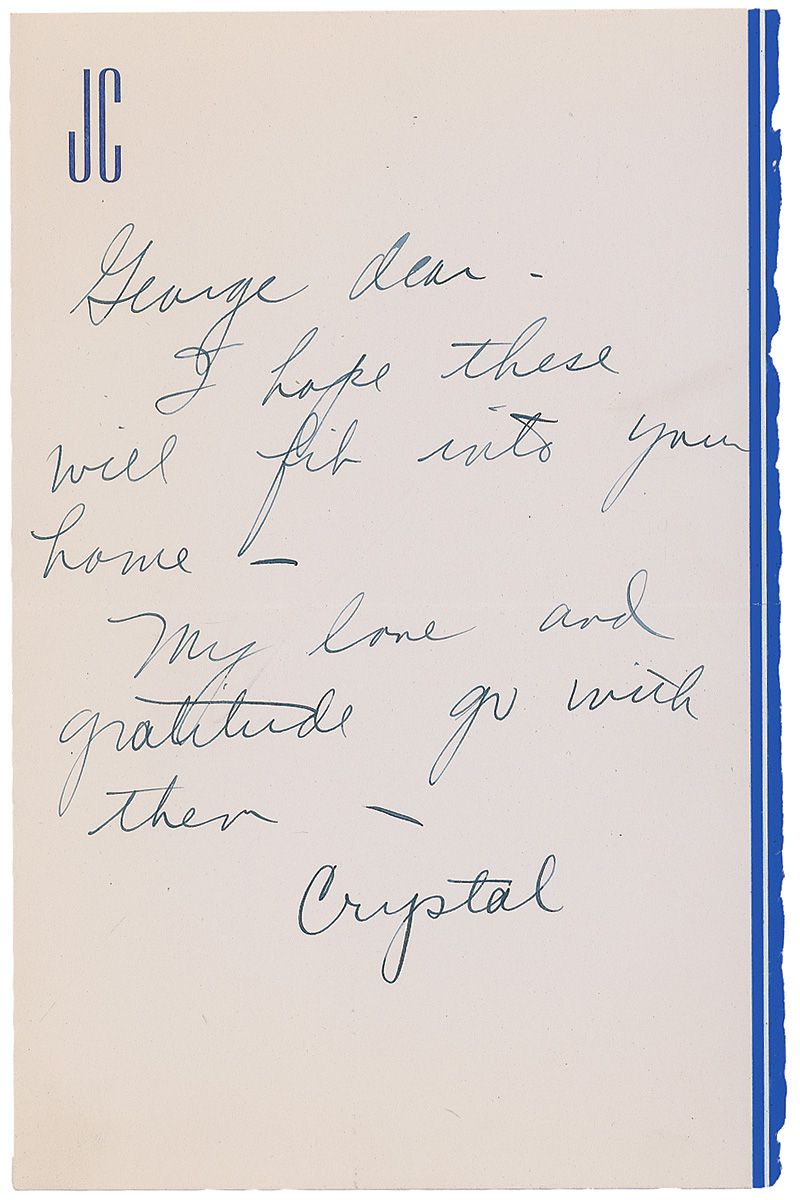 JC
George dear -
I hope these
will fit into your
home —
My love and
gratitude go with
them —
Crystal